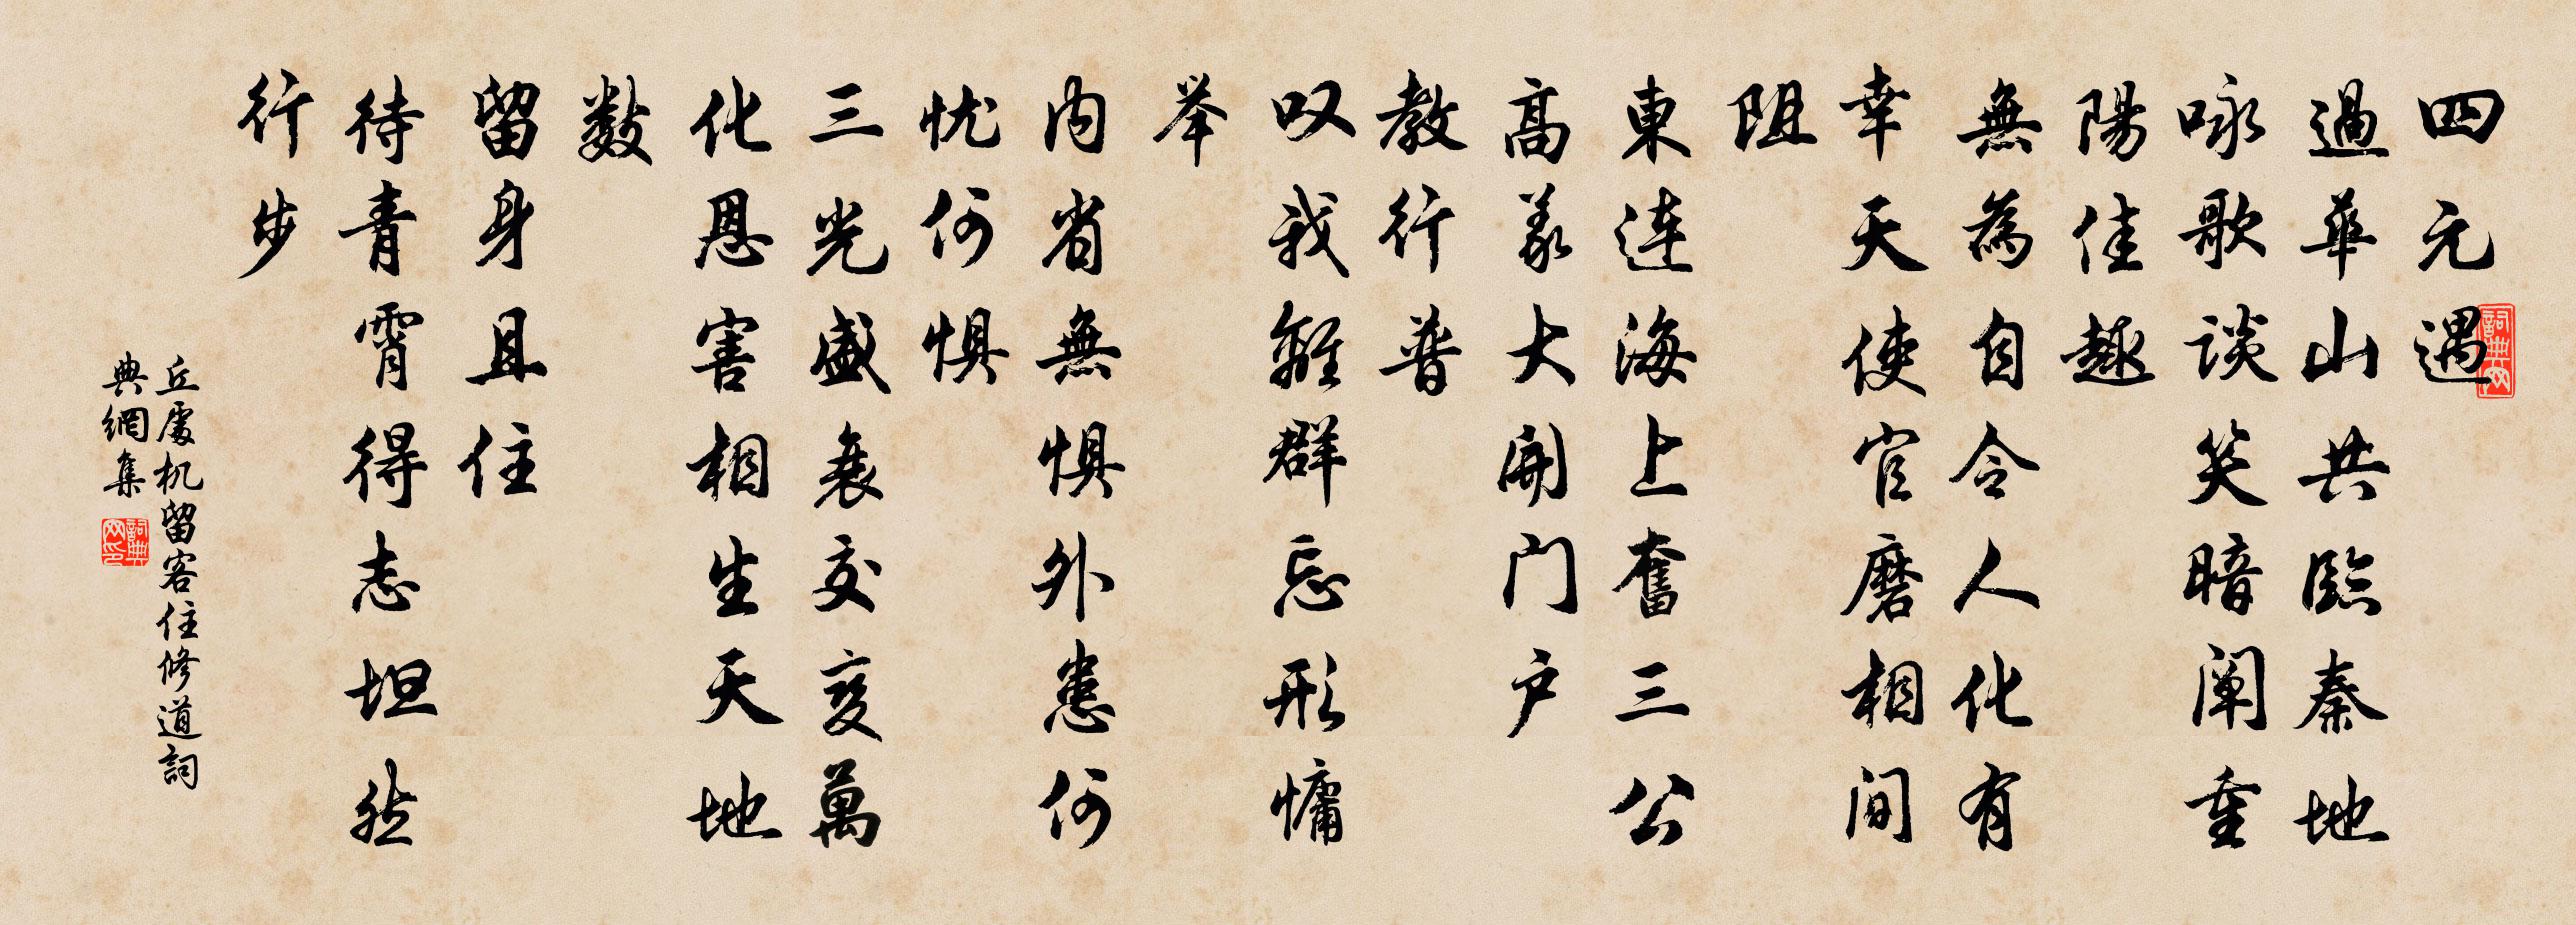 四元遇
過華山共臨秦地
咏歌談笑暗闡重
陽佳趣
無為自令人化有
幸天使官磨相间
阻
東連海上奮三公
高義大開门户
教行普
叹我離群忘形慵
举
内省無惧外患何
忧何惧
三光盛衰交変萬
化恩害相生天地
数
留身且住
待青霄得志坦然
行步
丘處机留客住修道詞
典網集
詞典网
詞典网印